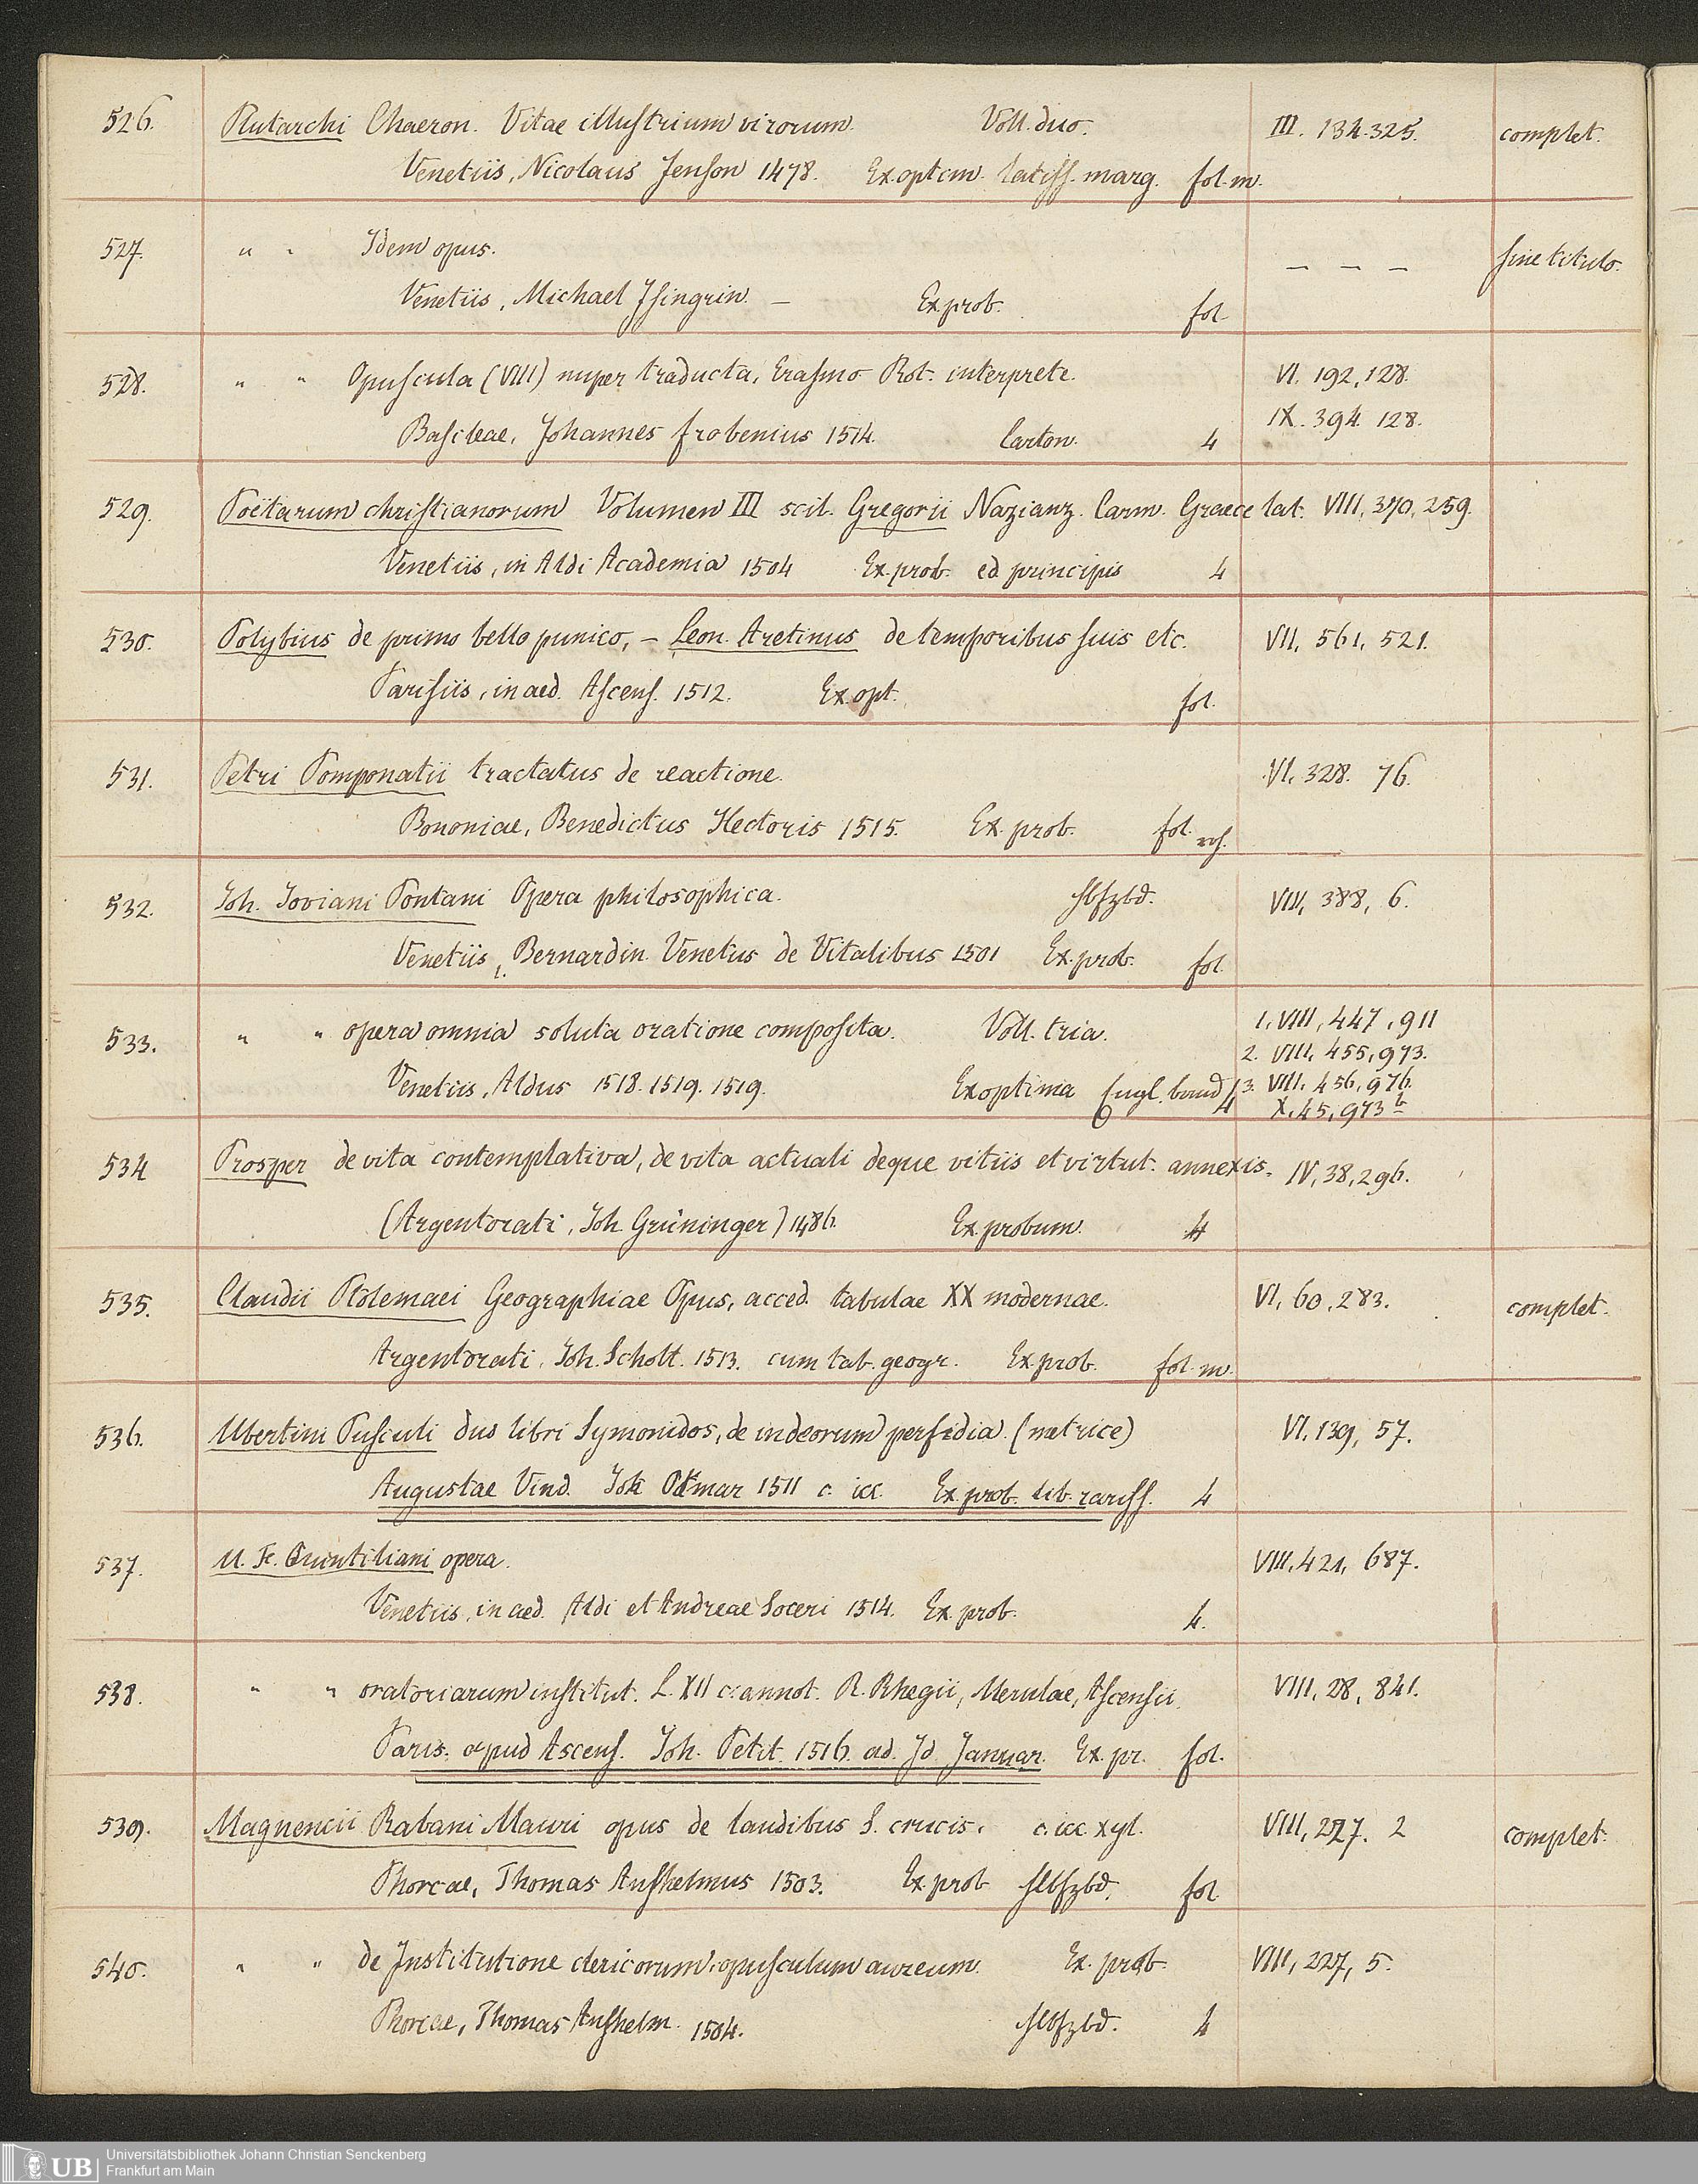 526. Plutarchi Chaeron. Vitae illustrium virorum. Voll. duo. III. 134.325. complet.
Venetiis, Nicolaus Jenson 1478. Ex. optim. latiss. marg. fol. m.
527. " " Idem opus. — — — sine titulo.
Venetiis, Michael Isingrin. — Ex. prob. fol.
528. " " Opuscula (VIII) nuper traducta, Erasmo Rot. interprete. VI. 192, 128.
IX. 394. 128.
Basileae, Johannes Frobenius 1514. Carton. 4
529. Poëtarum christianorum Volumen III scil. Gregorii Nazianz. Carm. Graece lat. VIII, 370, 259.
Venetiis, in Aldi Academia 1504 Ex. prob. ed principis 4
530. Polybius de primo bello punico, – Leon. Aretinus de temporibus suis etc. VII, 561, 521.
Parisiis, in aed. Ascens. 1512. Ex. opt. fol.
531. Petri Pomponatii tractatus de reactione. VI, 328. 76.
Bononiae, Benedictus Hectoris 1515. Ex. prob. fol.
532. Joh. Joviani Pontani Opera philosophica. Hbfzbd. VIII, 388, 6.
Venetiis, Bernardin. Venetus de Vitalibus 1501 Ex. prob. fol.
533. " " opera omnia soluta oratione composita. Voll. tria. 1. VIII, 447, 911
2. VIII, 455, 973.
Venetiis, Aldus 1518. 1519. 1519. Ex optima Engl. band 4 3. VIII. 456, 976.
X, 45, 973 b
534 Prosper de vita contemplativa, de vita actuali deque vitiis et virtut. annexis. IV, 38, 296.
(Argentorati, Joh. Grüninger) 1486. Ex. probum. 4
535. Claudii Ptolemaei Geographiae Opus, acced. tabulae XX modernae. VI, 60, 283. complet.
Argentorati, Joh. Schott. 1513. cum tab. geogr. Ex. prob. fol. m.
536. Ubertini Pusculi duo libri Symonidos, de iudeorum perfidia. (metrice) VI. 139, 57.
Augustae Vind. Joh Otmar 1511 c. icc. Ex. prob. lib. rariss. 4
537. M. F. Quintiliani opera. VIII. 421, 687.
Venetiis, in aed. Aldi et Andreae Soceri 1514. Ex. prob. 4.
538. " " oratoriarum institut. L. XII c. annot. R. Rhegii, Merulae, Ascensii. VIII, 28, 841.
Paris. apud Ascens. Joh. Petit. 1516. ad. Id. Januar. Ex. pr. fol.
539. Magnencii Rabani Mauri opus de laudibus S. crucis. c. icc. xyl. VIII, 227. 2 complet.
Phorcae, Thomas Anshelmus 1503. Ex. prob Hlbfzbd. fol.
540. " " de Institutione clericorum opusculum aureum. Ex. prob. VIII, 227, 5.
Phorcae, Thomas Anshelm. 1504. Hlbfzbd. 4
UB Universitätsbibliothek Johann Christian Senckenberg
Frankfurt am Main